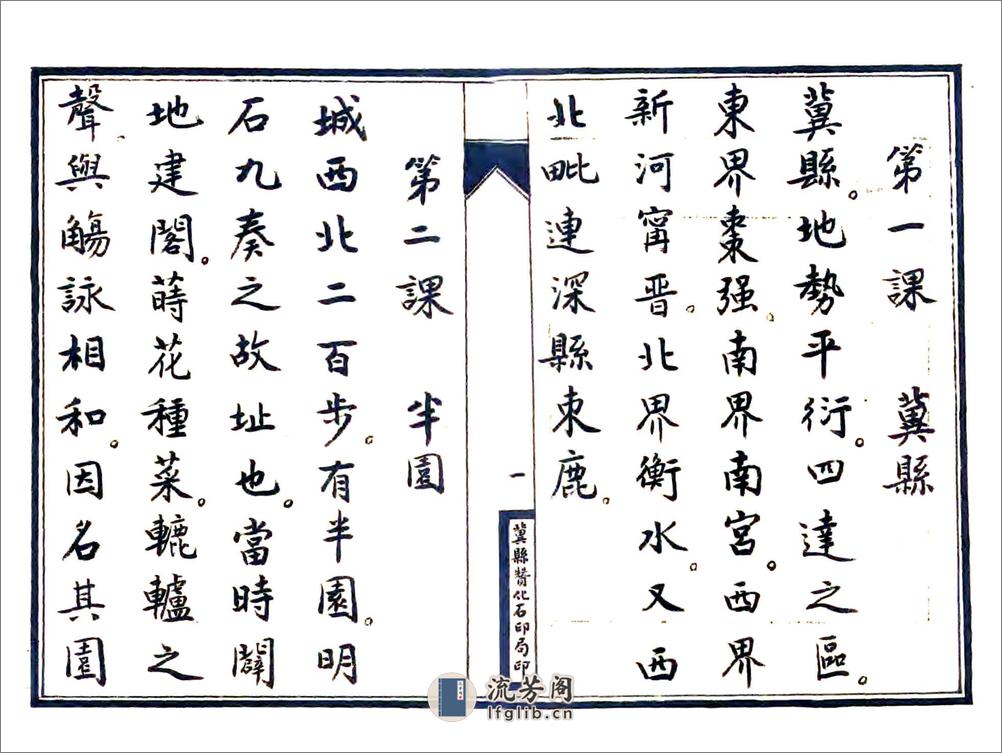 第一課 冀縣
冀縣。地勢平衍。四達之區。
東界棗强。南界南宮。西界
新河甯晋。北界衡水。又西
北毗連深縣束鹿。
一
冀縣贊化石印局印
第二課 半園
城西北二百步。有半園。明
石九奏之故址也。當時闢
地建閣。蒔花種菜。轆轤之
聲。與觴詠相和。因名其園
流芳阁
lfglib.cn